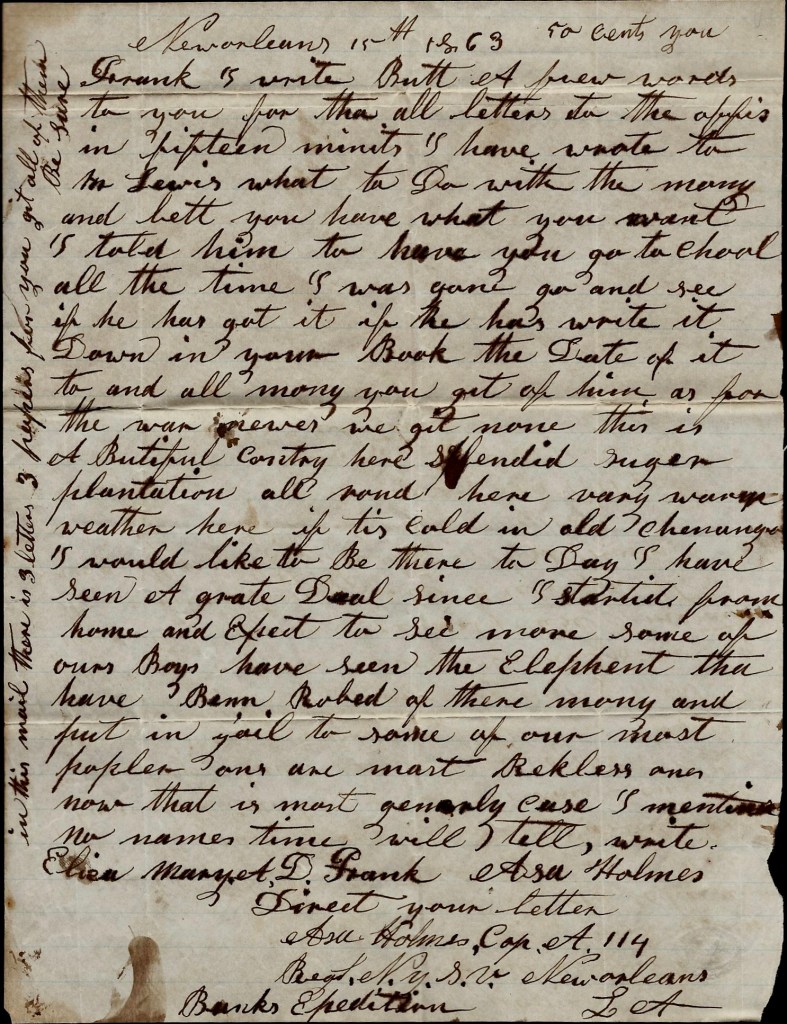 Neworleans 15th 1863 50 cents you
Frank I write Butt A few words
to you for tha all letters to the offis
in fifteen minits I have wrote to
Mr Lewis what to Do with the mony
and lett you have what you want
I told him to have you go to chool
all the time I was gone go and see
if he has got it if he has write it
Down in your Book the Date of it
to and all mony you get of him as for
the war newes we git none this is
A Butiful contry here splendid suger
plantation all rond here vary warm
weather here if tis cold in old chenango
I would like to Be there to Day I have
seen A grate Deal since I startid from
home and Expect to see more some of
ours Boys have seen the Elephent tha
have Benn Robed of there mony and
put in jail to some of our most
popler ons are most Rekless ones
now that is most generly case I mention
no names time will tell, write.
Eliza Mary. A. D. Frank Asa Holmes
Direct your letter
Asa Holmes, Cop. A. 114
Regt. N. y. S. v. Neworleans
Banks Epedition L A
in this mail there is 3 letters 3 papers for you git all of them
Be sure